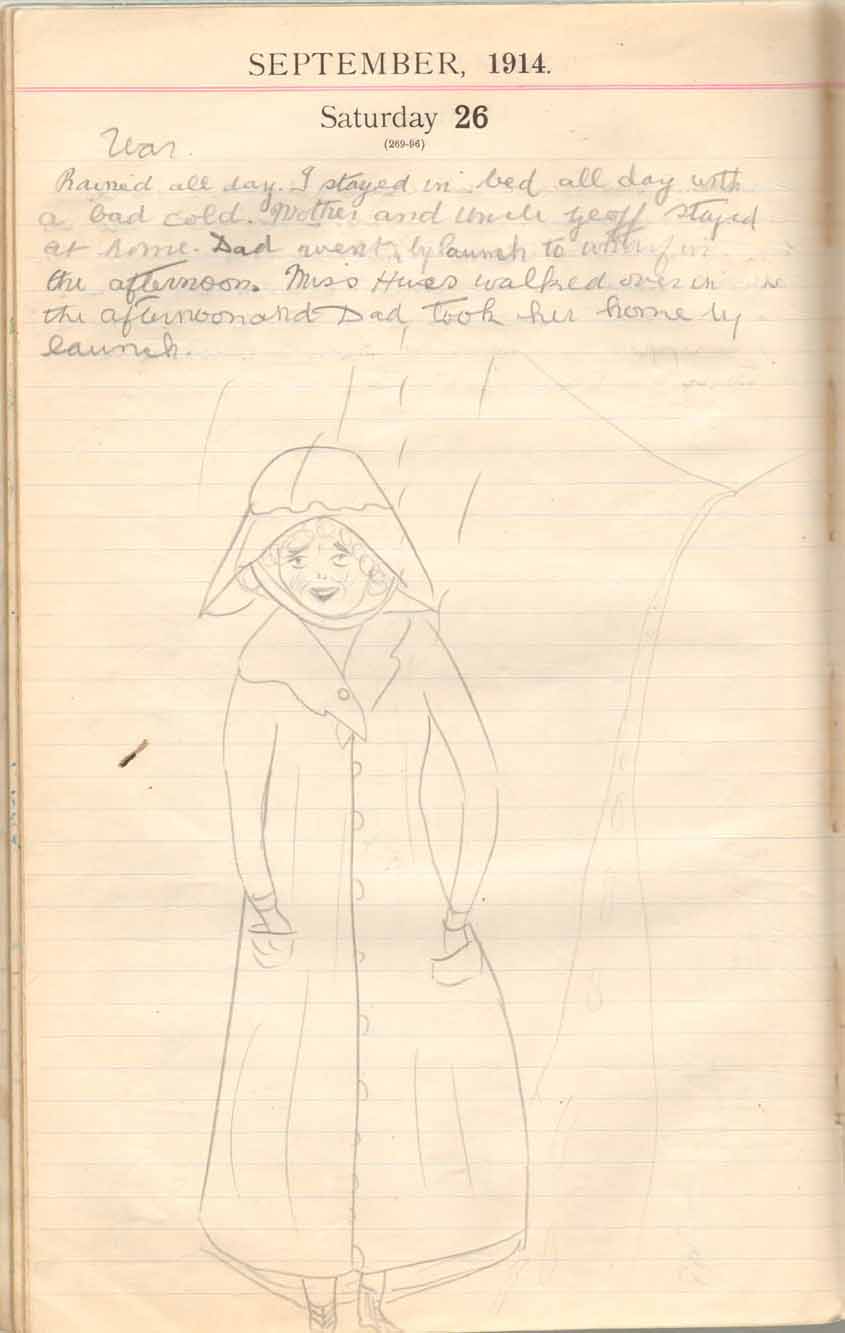 SEPTEMBER, 1914.
Saturday 26
(269-96)
War.
Rained all day. I stayed in bed all day with
a bad cold. Mother and Uncle Geoff stayed
at home. Dad went by launch to wharf in
the afternoon. Miss Hives walked over in
the afternoon and Dad took her home by
launch.